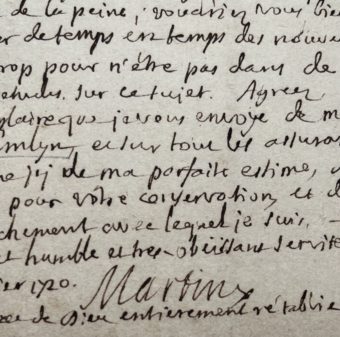 de la peine; voudriez vous bien
er de temps en temps des nouve
rop pour n'être pas dans de
etudes sur ce sujet. Agreez
plaire que je vous envoye de m
et sur tout les assuran
de ma parfaite estime,
pour votre conservation, et d
chement avec lequel je suis,
humble et tres-obeïssant servite
ier 1720. Martin
de Dieu entierement rétablie